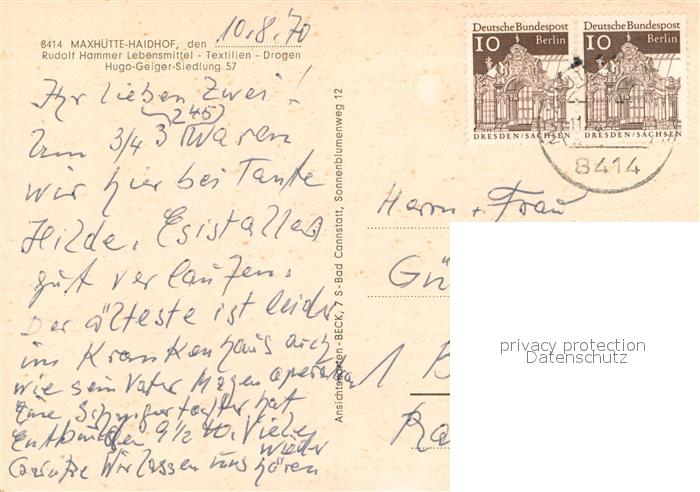 8414 MAXHÜTTE-HAIDHOF, den 10.8.70
Rudolf Hammer Lebensmittel - Textilien - Drogen
Hugo-Geiger-Siedlung 57
Ihr lieben Zwei!
(245)
Um 3/4 3 Waren
wir hier bei Tante
Hilde. Es ist alles
gut verlaufen.
Der älteste ist leider
im Krankenhaus auch
wie sein Vater Magen
Eine Schwiegertochter hat
Entbunden 9 1/2 Viele
Grüße Wir lassen uns wieder hören
Ansichtskarten-BECK, 7 S-Bad Cannstatt, Sonnenblumenweg 12
Deutsche Bundespost
10 Berlin
DRESDEN/SACHSEN
Deutsche Bundespost
10 Berlin
DRESDEN/SACHSEN
8414
Herrn + Frau
Gü
1 B
privacy protection
Datenschutz